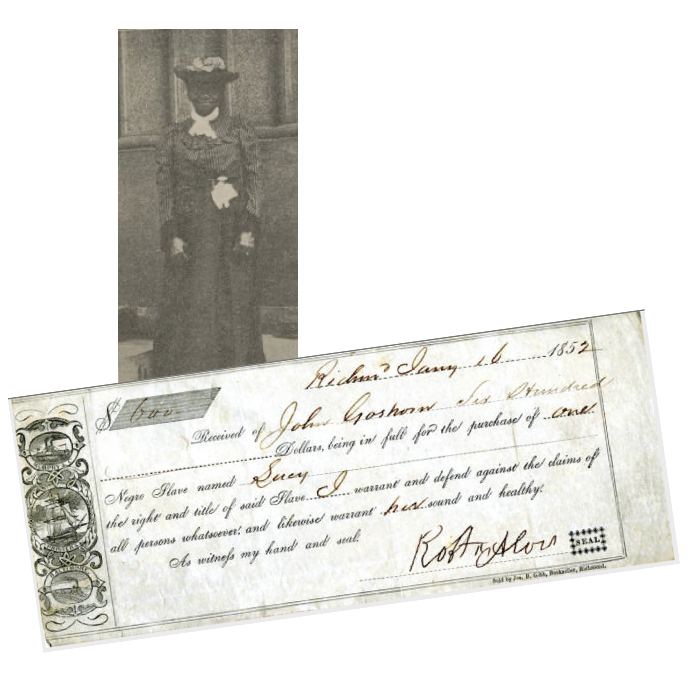 Richmd Jany 16 1852
$ 600
Received of John Goshorn Six Hundred
Dollars, being in full for the purchase of one
Negro Slave named Lucy
the right and title of said Slave I warrant and defend against the claims of
all persons whatsoever; and likewise warrant her sound and healthy.
As witness my hand and seal.
SEAL
Sold by Jos. Bookseller, Richmond.
BALTIMORE